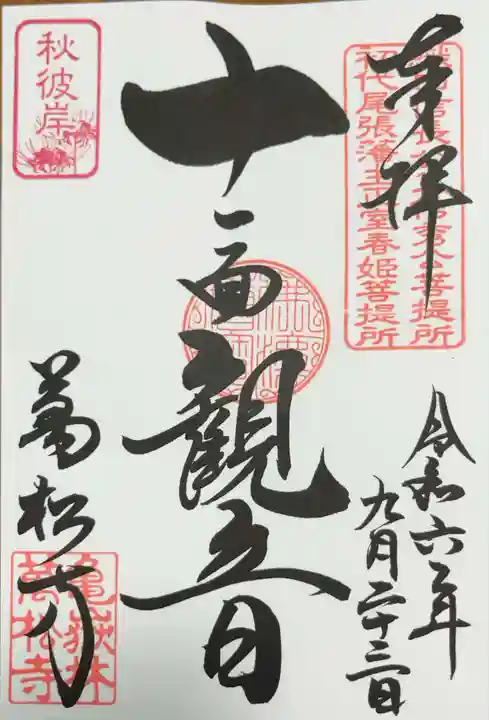 奉拝
初代尾張藩主正室春姫菩提所
令和六年
九月二十三日
十一面観音
秋彼岸
萬松寺
亀嶽林
萬松寺